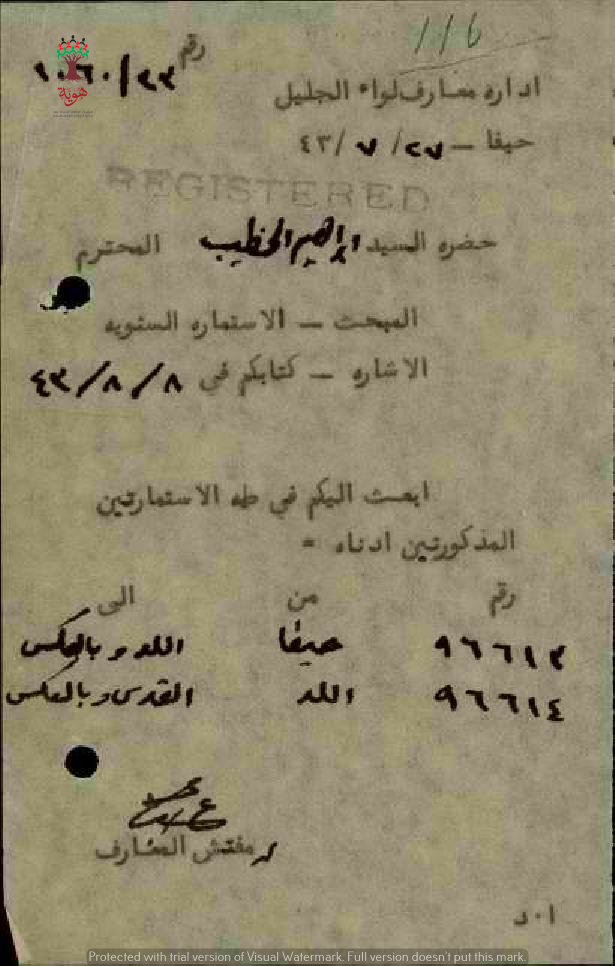 116
رقم
١٠٦٠/٢٣
هوية
اداره معارف لواء الجليل
حيفا – ٢٧/ ٧ /٤٣
REGISTERED
حضره السيد ابراهيم الخطيب المحترم
المبحث – الاستماره السنويه
الاشاره – كتابكم في ٨/٨/٤٣
ابعث اليكم في طه الاستمارتين
المذكورتين ادناه =
رقم من الى
٩٦٦١٣ حيفا اللد وبالعكس
٩٦٦١٤ اللد القدس وبالعكس
مفتش المعارف
ا٠د
Protected with trial version of Visual Watermark. Full version doesn't put this mark.